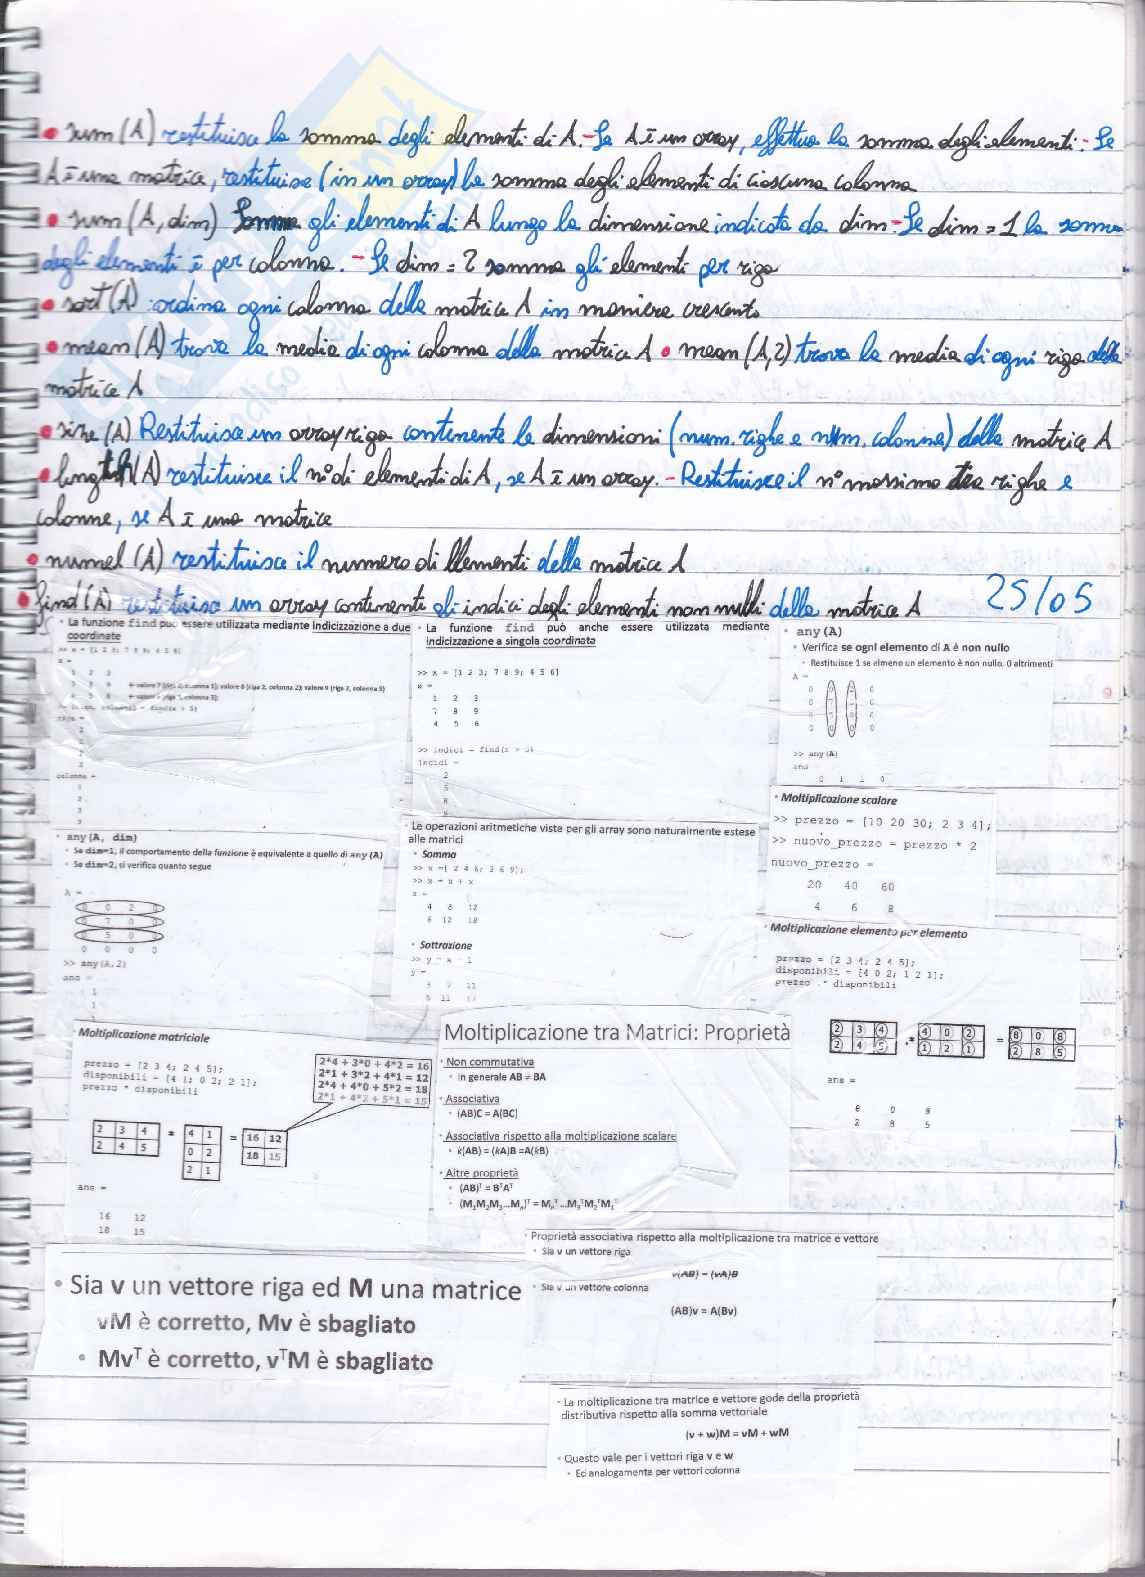 • sum (A) restituisce la somma degli elementi di A. - Se A è un array, effettua la somma degli elementi. - Se
A è una matrice, restituisce (in un array) la somma degli elementi di ciascuna colonna
• sum (A, dim) Somma gli elementi di A lungo la dimensione indicata da dim - Se dim = 1 la somma
degli elementi è per colonna. - Se dim = 2 somma gli elementi per riga
• sort (A) ordina ogni colonna della matrice A in maniera crescente
• mean (A) trova la media di ogni colonna della matrice A • mean (A,2) trova la media di ogni riga della
matrice A
• size (A) Restituisce un array riga contenente le dimensioni (num. righe e num. colonne) della matrice A
• length (A) restituisce il n° di elementi di A, se A è un array. - Restituisce il n° massimo tra righe e
colonne, se A è una matrice
• numel (A) restituisce il numero di elementi della matrice A
• find (A) restituisce un array contenente gli indici degli elementi non nulli della matrice A
25/05
• La funzione find può essere utilizzata mediante indicizzazione a due
coordinate
>> x = [1 2 3; 7 8 9; 4 5 6]
x =
1 2 3
7 8 9
4 5 6
colonne =
1
2
3
3
• La funzione find può anche essere utilizzata mediante
indicizzazione a singola coordinata
>> x = [1 2 3; 7 8 9; 4 5 6]
x =
1 2 3
7 8 9
4 5 6
>> indici = find(x > 5)
indici =
2
5
8
9
• any (A)
• Verifica se ogni elemento di A è non nullo
• Restituisce 1 se almeno un elemento è non nullo, 0 altrimenti
A =
>> any (A)
ans
0 1 1 0
• any (A, dim)
• Se dim=1, il comportamento della funzione è equivalente a quello di any (A)
• Se dim=2, si verifica quanto segue
A =
0 0 2
0 7 0
5 0
0 0 0 0
>> any (A,2)
ans =
1
1
• Le operazioni aritmetiche viste per gli array sono naturalmente estese
alle matrici
• Somma
>> x =[ 2 4 6; 3 6 9];
>> x = x + x
x =
4 8 12
6 12 18
• Sottrazione
>> y = x - 1
y =
3 7 11
5 11 17
• Moltiplicazione scalare
>> prezzo = [10 20 30; 2 3 4];
>> nuovo_prezzo = prezzo * 2
nuovo_prezzo =
20 40 60
4 6 8
• Moltiplicazione elemento per elemento
prezzo = [2 3 4; 2 4 5];
disponibili = [4 0 2; 1 2 1];
prezzo .* disponibili
2 3 4
2 4 5
.*
4 0 2
1 2 1
=
8 0 8
2 8 5
ans =
8 0 8
2 8 5
Moltiplicazione matriciale
prezzo = [2 3 4; 2 4 5];
disponibili = [4 1; 0 2; 2 1];
prezzo * disponibili
2*4 + 3*0 + 4*2 = 16
2*1 + 3*2 + 4*1 = 12
2*4 + 4*0 + 5*2 = 18
2*1 + 4*2 + 5*1 = 15
2 3 4
2 4 5
*
4 1
0 2
2 1
=
16 12
18 15
ans =
16 12
18 15
Moltiplicazione tra Matrici: Proprietà
• Non commutativa
• In generale AB ≠ BA
• Associativa
• (AB)C = A(BC)
• Associativa rispetto alla moltiplicazione scalare
• k(AB) = (kA)B =A(kB)
• Altre proprietà
• (AB)ᵀ = BᵀAᵀ
• (M₁M₂M₃...Mₙ)ᵀ = Mₙᵀ...M₃ᵀM₂ᵀM₁ᵀ
• Sia v un vettore riga ed M una matrice
vM è corretto, Mv è sbagliato
• Mvᵀ è corretto, vᵀM è sbagliato
• Proprietà associativa rispetto alla moltiplicazione tra matrice e vettore
• Sia v un vettore riga
v(AB) = (vA)B
• Sia v un vettore colonna
(AB)v = A(Bv)
• La moltiplicazione tra matrice e vettore gode della proprietà
distributiva rispetto alla somma vettoriale
(v + w)M = vM + wM
• Questo vale per i vettori riga v e w
• Ed analogamente per vettori colonna